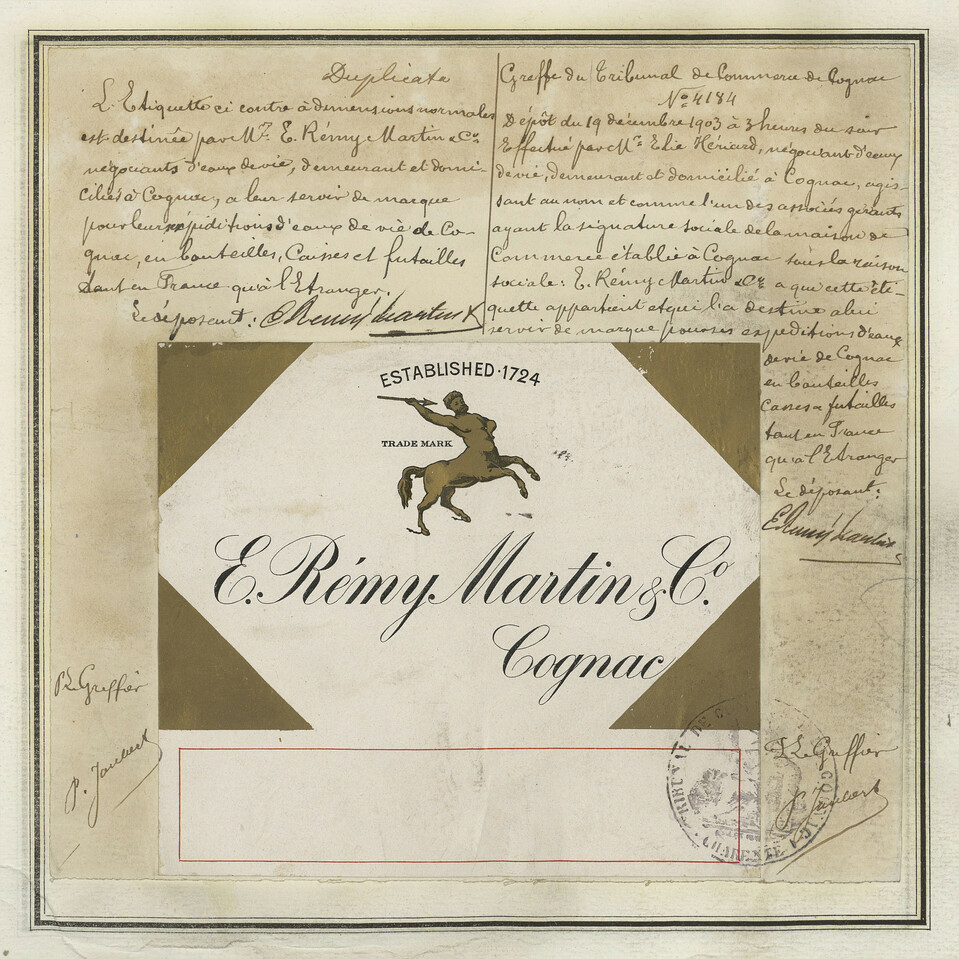 Duplicata
L'Etiquette ci contre à dimensions normales
est destinée par Mrs. E. Rémy Martin & Co.
négociants d'eaux de vie, demeurant et domi-
ciliés à Cognac, a leur servir de marque
pour leurs expéditions d'eaux de vie de Co-
gnac, en bouteilles, Caisses et futailles
tant en France qu'à l'Etranger.
Le déposant: E Remy Martin & Co
Greffe du Tribunal de Commerce de Cognac
No 4184
Dépôt du 19 décembre 1903 à 3 heures du soir
Effectué par Mr. Elie Hériard, négociant d'eaux
de vie, demeurant et domicilié à Cognac, agis-
sant au nom et comme l'un des associés gérants
ayant la signature sociale de la maison de
Commerce établie à Cognac sous la raison
sociale: E. Rémy Martin & Co. a que cette éti-
quette appartient et qu'il la destine a lui
servir de marque pour ses expeditions d'eaux
de vie de Cognac
en bouteilles
Caisses & futailles
tant en France
qu'à l'Etranger
Le déposant:
E Remy Martin
ESTABLISHED·1724
TRADE MARK
E. Rémy Martin & Co.
Cognac
P. Le Greffier
P. Joubert
TRIBUNAL DE
CHARENTE
P. Le Greffier
P. Joubert